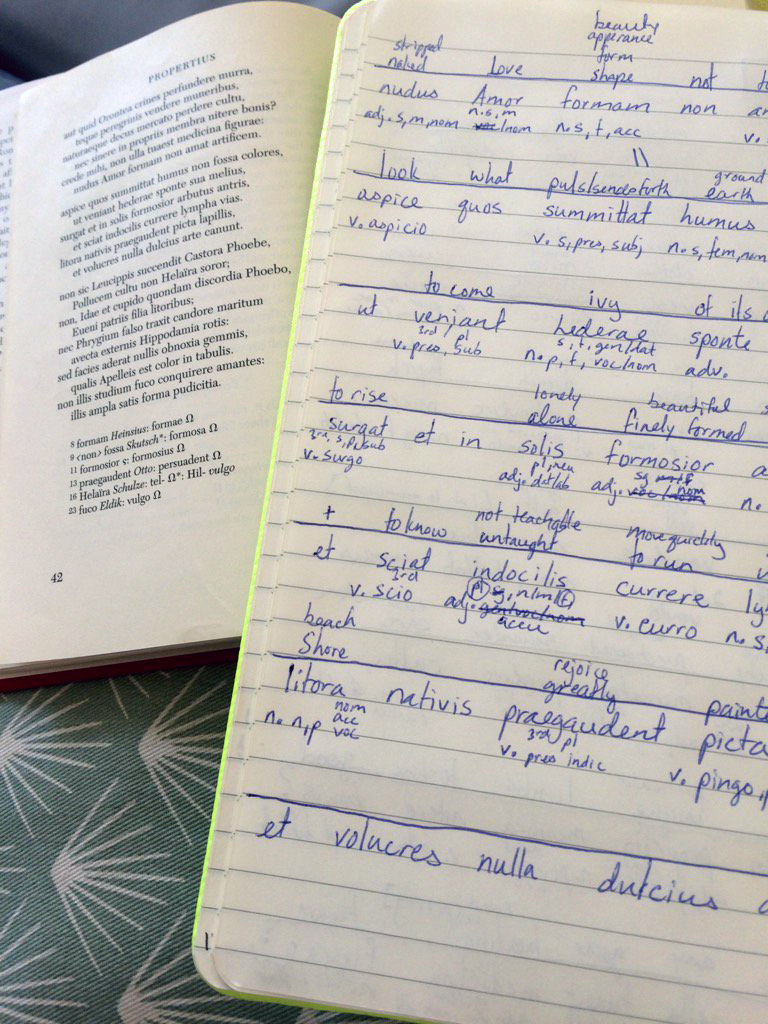 PROPERTIUS
aut quid Orontea crines perfundere murra,
teque peregrinis vendere muneribus,
naturaeque decus mercato perdere cultu,
nec sinere in propriis membra nitere bonis?
crede mihi, non ulla tuaest medicina figurae:
nudus Amor formam non amat artificem.
aspice quos summittat humus non fossa colores,
ut veniant hederae sponte sua melius,
surgat et in solis formosior arbutus antris,
et sciat indocilis currere lympha vias.
litora nativis praegaudent picta lapillis,
et volucres nulla dulcius arte canunt.
non sic Leucippis succendit Castora Phoebe,
Pollucem cultu non Helaïra soror;
non, Idae et cupido quondam discordia Phoebo,
Eueni patriis filia litoribus;
nec Phrygium falso traxit candore maritum
avecta externis Hippodamia rotis:
sed facies aderat nullis obnoxia gemmis,
qualis Apelleis est color in tabulis.
non illis studium fuco conquirere amantes:
illis ampla satis forma pudicitia.
8 formam Heinsius: formae Ω
9 <non> fossa Skutsch*: formosa Ω
11 formosior ς: formosius Ω
13 praegaudent Otto: persuadent Ω
16 Helaïra Schulze: tel- Ω*: Hil- vulgo
23 fuco Eldik: vulgo Ω
42
beauty
apperance
stripped form
naked love shape not
nudus Amor formam non
adj. s, m, nom n. s, m voc/nom n. s, f, acc v.
look what puls/sends forth ground earth
aspice quos summittat humus
v. aspicio v. s, pres, subj n. s, fem, nom
to come ivy of its
ut veniant hederae sponte
3rd pl s, f, gen/dat
v. pres, sub n. p, f, voc/nom adv.
to rise lonely beautiful
alone finely formed
surgat et in solis formosior
3rd, s, p, sub pl, neu sg m+f
v. surgo adj. dat/ab adj. voc/nom n.
+ to know not teachable move quickly
untaught to run
et sciat indocilis currere
3rd pl sg, n/m/f
v. scio adj. gen/voc/nom v. curro n. s,
accu
beach
Shore rejoice
greatly
litora nativis praegaudent picta
nom
n. n, p acc 3rd pl
voc v. pres indic v. pingo,
et volucres nulla dulcius